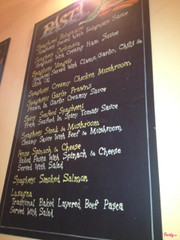 PASTA
Spaghetti Bolognaise
Spaghetti with Bolognaise Sauce
Spaghetti Carbonara
Spaghetti with Creamy Ham Sauce
Spaghetti Vongole
Pasta Served with Clams, Garlic, Chilli &
Spaghetti Creamy Chicken Mushroom
Spaghetti Garlic Prawns
Prawn in Garlic Creamy Sauce
Spicy Seafood Spaghetti
Fresh Seafood in Spicy Tomato Sauce
Spaghetti Steak & Mushroom
Creamy Sauce with Beef & Mushroom
Penne Spinach & Cheese
Baked Pasta with Spinach & Cheese
Served with Salad
Spaghetti Smoked Salmon
Lasagna
Traditional Baked Layered Beef Pasta
Served with Salad